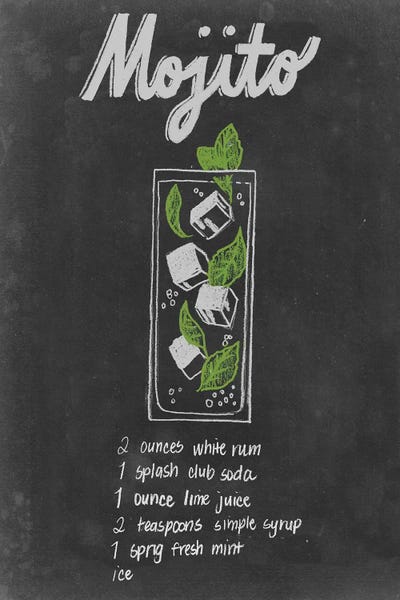 Mojito
2 ounces white rum
1 splash club soda
1 ounce lime juice
2 teaspoons simple syrup
1 sprig fresh mint
ice